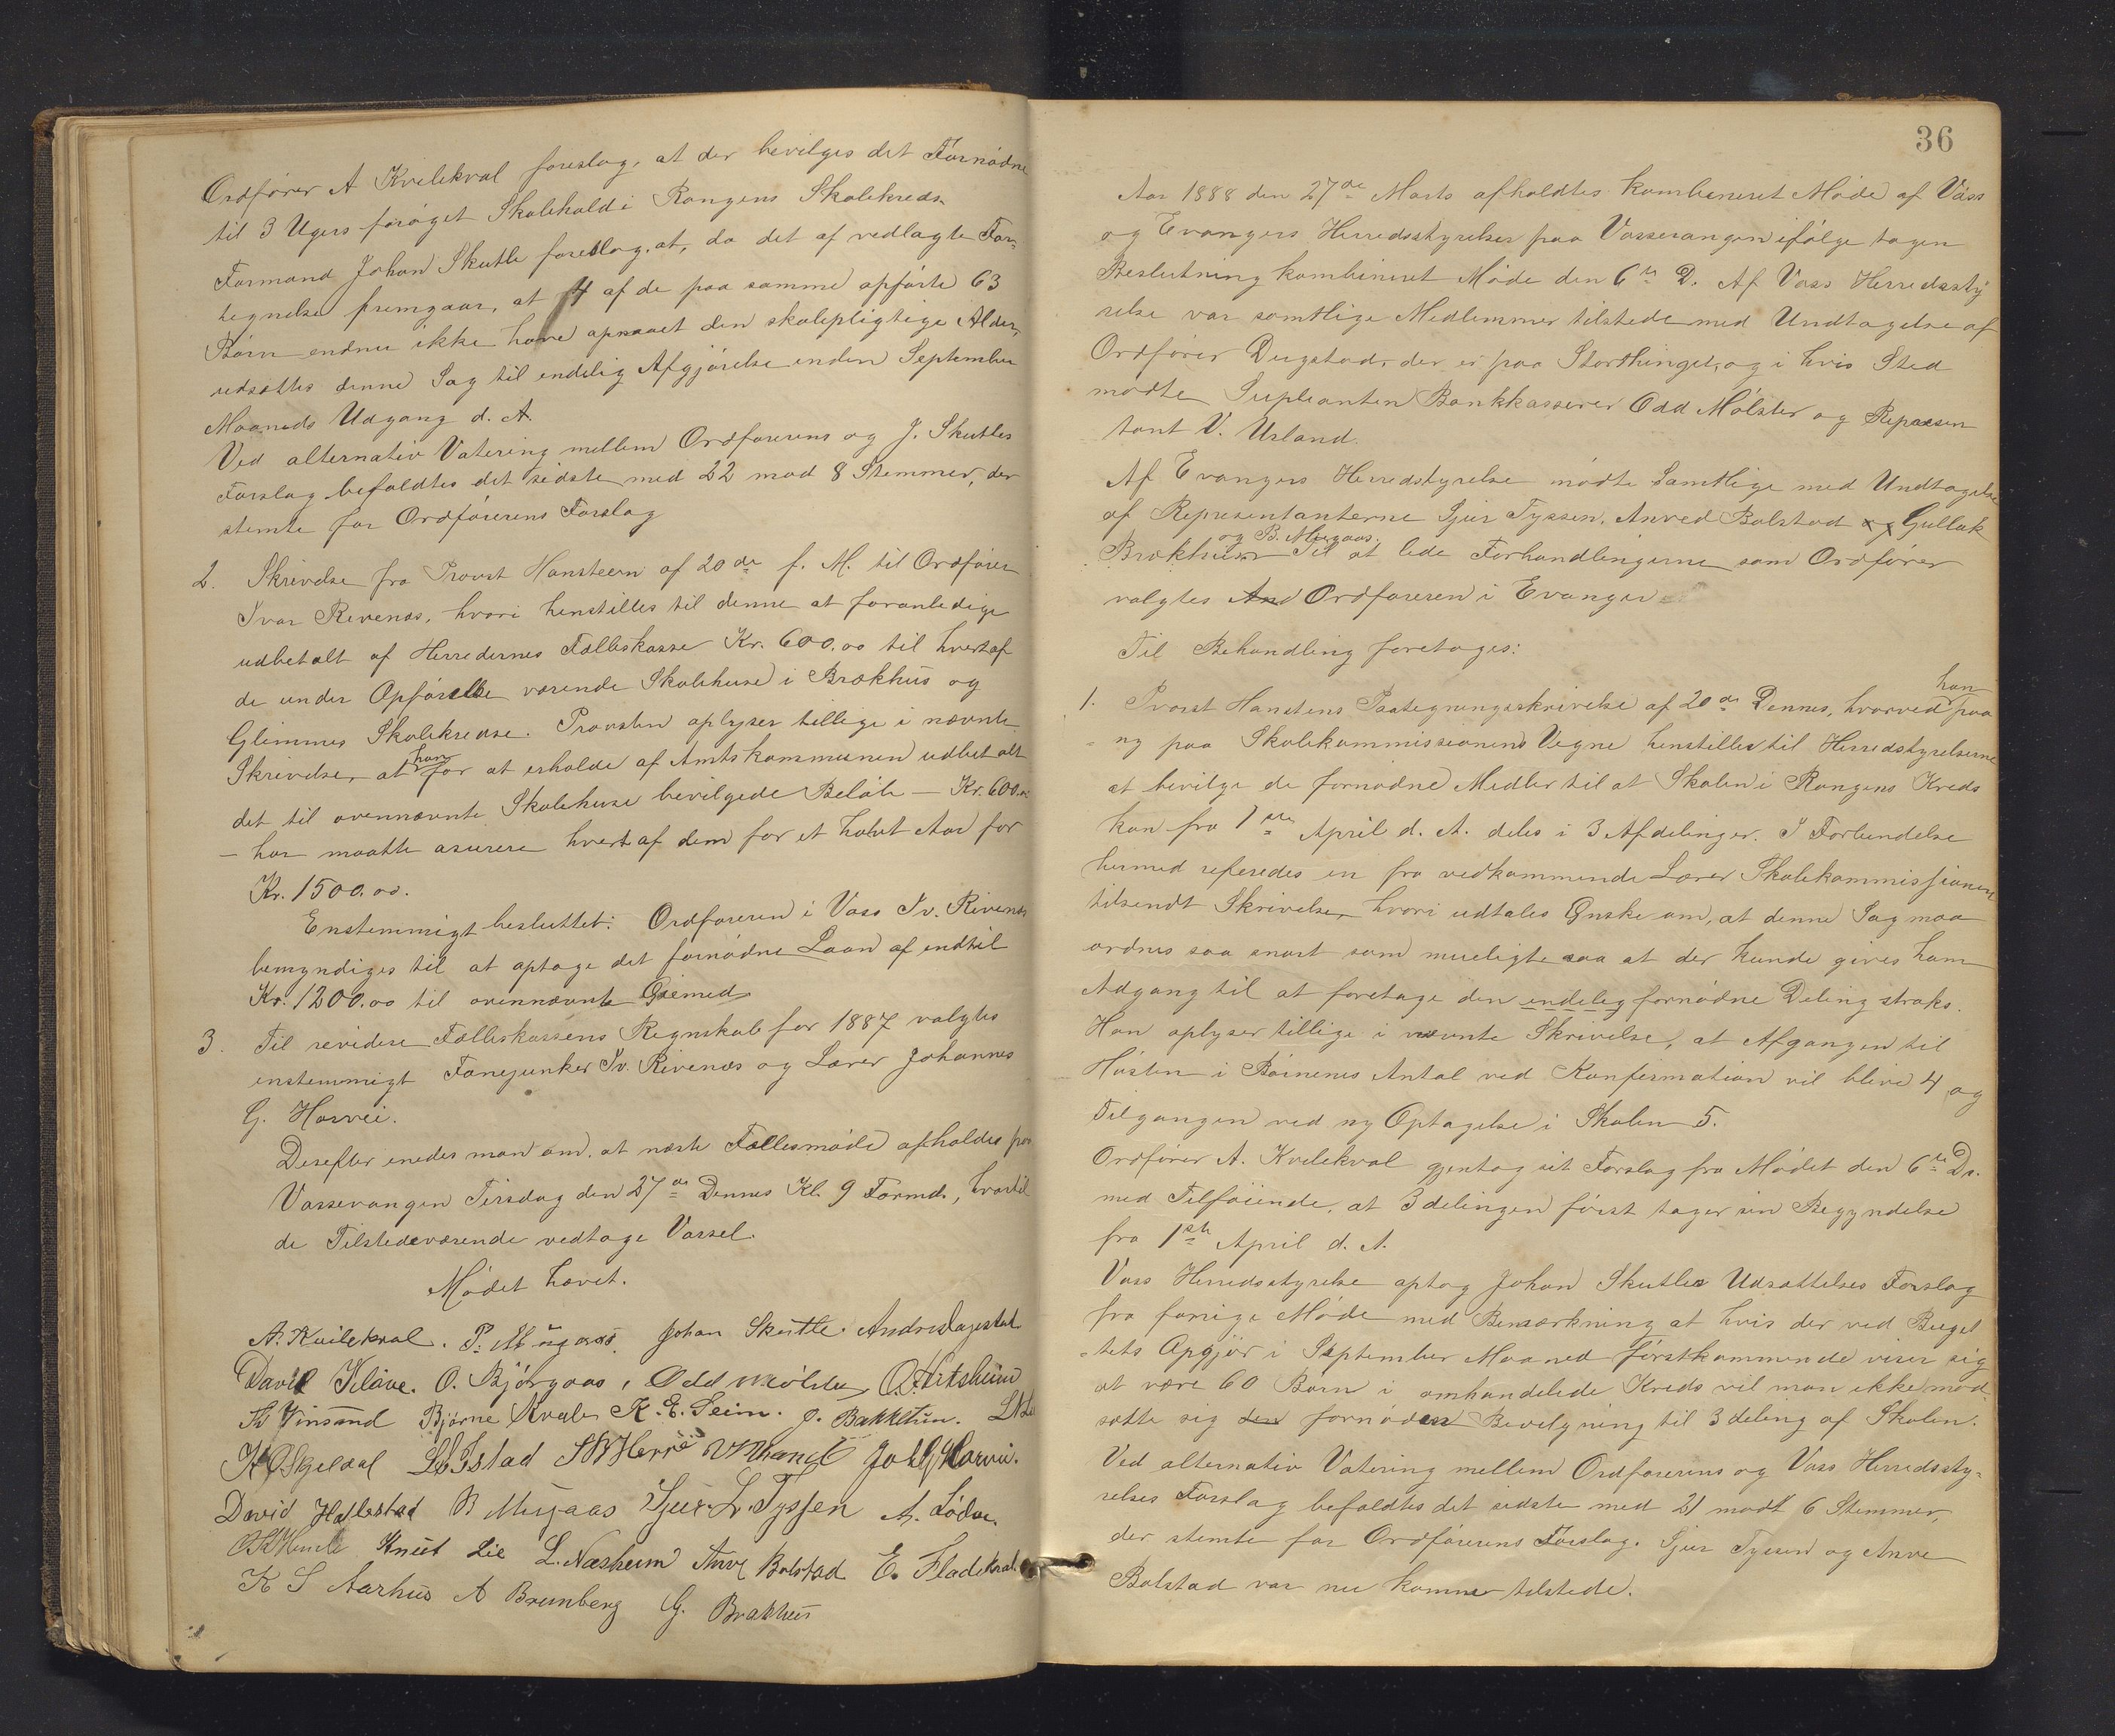 Ordfører A Kvilekval foreslog, at der bevilges det Fornødne
til 3 Ugers forøget Skolehold i Rongens Skolekreds.
Formand Johan Skutle foreslog, at, da det af vedlagte For-
tegnelse fremgaar, at 4 af de paa samme opførte 63
Børn endnu ikke have opnaaet den skolepligtige Alder,
udsættes denne Sag til endelig Afgjørelse inden September
Maaneds Udgang d. A.
Ved alternativ Votering mellem Ordførerens og J. Skutles
Forslag befoldtes det sidste med 22 mod 8 Stemmer, der
stemte for Ordførerens Forslag
2. Skrivelse fra Provst Hansteen af 20de f. M. til Ordfører
Ivar Rivenæs, hvori henstilles til denne at foranledige
udbetalt af Herredernes Fælleskasse Kr. 600.00 til hvert af
de under Opførelse værende Skolehuse i Brækhus og
Glimmes Skolekredse. Provsten oplyser tillige i nævnte
Skrivelse, at han for at erholde af Amtskommunen udbetalt
det til ovennævnte Skolehuse bevilgede Beløb – Kr. 600.00
– har maatte asurere hvert af dem for et halvt Aar for
Kr. 1500.00.
Enstemmigt besluttet: Ordføreren i Voss Iv. Rivenæs
bemyndiges til at optage det fornødne Laan af indtil
Kr. 1200.00 til ovennævnte Øiemed
3. Til revidere Fælleskassens Regnskab for 1887 valgtes
enstemmigt Fanejunker Iv. Rivenæs og Lærer Johannes
G. Horvei.
Derefter enedes man om, at næste Fællesmøde afholdes paa
Vossevangen Tirsdag den 27de Dennes Kl. 9 Formd., hvortil
de Tilstedeværende vedtoge Varsel.
Mødet hævet.
A. Kvilekval. P. Mügaas. Johan Skutle. Andres
David Kláve. O. Bjørgaas, Odd Mölster
Bjørne Kvale K. E. Seim. J. Bakketun.
K O Skjeldal L B Istad Joh G Horvei.
David Hallestad B Mugaas Sjur L. Tyssen A. Lødve.
Knut Lie L. Næsheim Anve Bolstad E. Fladekval.
K S Aarhus A Brunberg G. Brækhus
36
Aar 1888 den 27de Marts afholdtes kombineret Møde af Voss
og Evangers Herredsstyrelser paa Vossevangen ifølge tagen
Beslutning kombineret Møde den 6te D. Af Voss Herredssty-
relse var samtlige Medlemmer tilstede med Undtagelse af
Ordfører Dugstad, der er paa Storthinget, og i hvis Sted
mødte Supleanten Bankkasserer Odd Mölster og Repræsen
tant V. Urland.
Af Evangers Herredstyrelse mødte Samtlige med Undtagelse
af Representanterne Sjur Tyssen, Anved Bolstad og Gullak
og B. Mugaas.
Brækhus Til at lede Forhandlingerne som Ordfører
valgtes And Ordføreren i Evanger
Til Behandling foretoges:
han
1. Provst Hanstens Paategningsskrivelse af 20de Dennes, hvorved paa
ny paa Skolekommissionens Vegne henstilles til Herredstyrelserne
at bevilge de fornødne Medler til at Skolen i Rongens Kreds
kan fra 1ste April d. A. deles i 3 Afdelinger. I Forbindelse
hermed refereredes en fra vedkommende Lærer Skolekommissionen
tilsendt Skrivelse, hvori udtales Ønske om, at denne Sag maa
ordnes saa snart som mueligt saa at der kunde gives ham
Adgang til at foretage den endelig fornødne Deling straks.
Han oplyser tillige i nævnte Skrivelse, at Afgangen til
Høsten i Børnenes Antal ved Konfirmation vil blive 4 og
Tilgangen ved ny Optagelse i Skolen 5.
Ordfører A. Kvilekval gjentog sit Forslag fra Mødet den 6te Ds.
med Tilføiende, at 3delingen først tager sin Begyndelse
fra 1ste April d. A.
Voss Herredsstyrelse optog Johan Skutles Udsættelses Forslag
fra forrige Møde med Bemærkning at hvis der ved Buget
-tets Opgjør i September Maaned førstkommende viser sig
at være 60 Børn i omhandelede Kreds vil man ikke mod
sætte sig den fornøden Bevilgning til 3deling af Skolen.
Ved alternativ Votering mellem Ordførerens og Voss Herredssty-
relses Forslag befoldtes det sidste med 21 modt 6 Stemmer,
der stemte for Ordførerens Forslag. Sjur Tyssen og Anve
Bolstad var nu kommen tilstede.